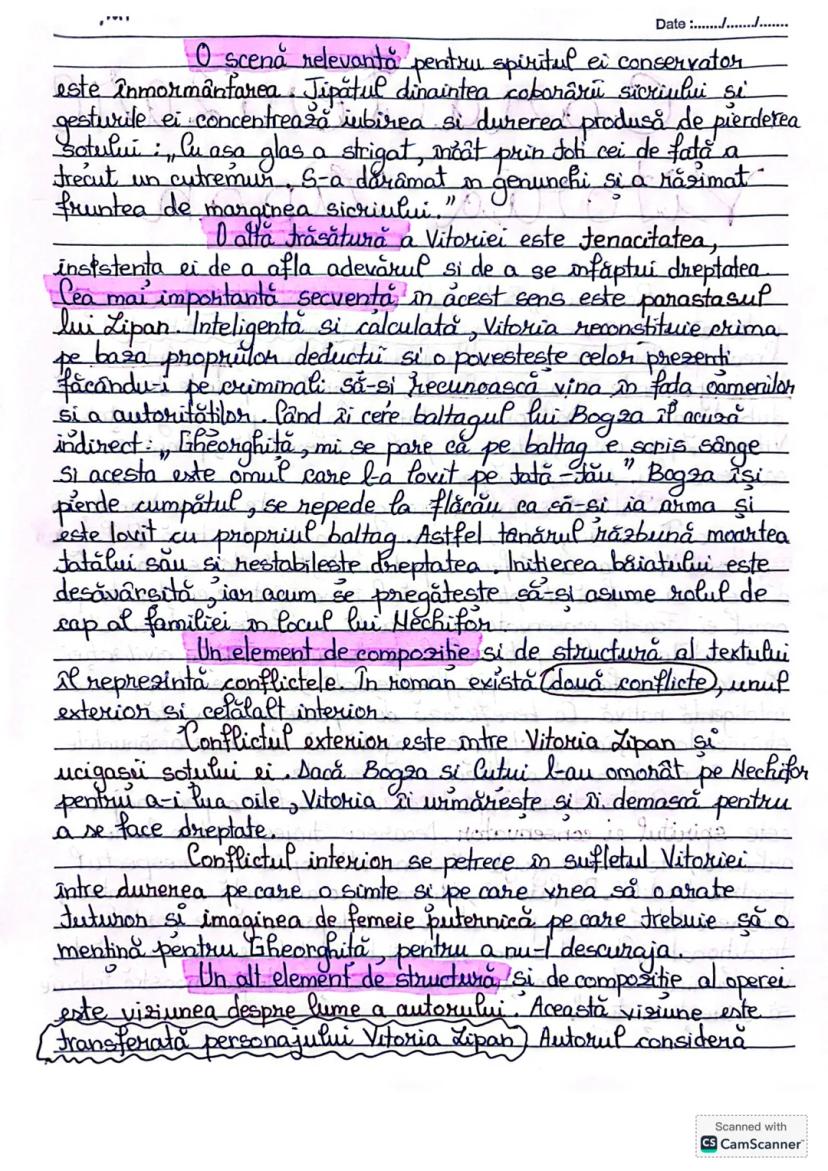 Date :......./......./.......
O scenă relevantă pentru spiritul ei conservator
este înmormântarea. Țipătul dinaintea coborârii sicriului și
gesturile ei concentrează iubirea si durerea produsă de pierderea
sotului : „Cu asa glas a strigat, încât prin toti cei de fată a
trecut un cutremur. S-a dărâmat în genunchi si a răzimat
fruntea de marginea sicriului."
O altă trăsătură a Vitoriei este tenacitatea,
insistenta ei de a afla adevărul si de a se înfăptui dreptatea
Cea mai importantă secvență în acest sens este parastasul
lui Lipan. Inteligentă si calculată, Vitoria reconstituie crima
pe baza propriilor deductii si o povesteste celor prezenți
făcându-i pe criminali să-si recunoască vina în fata oamenilor
si a autoritătilor. Când îi cere baltagul lui Bogza îl acuză
indirect : „Gheorghiță, mi se pare că pe baltag e scris sânge
si acesta este omul care l-a lovit pe tată-tău" Bogza își
pierde cumpătul, se repede la flăcău ca să-si ia arma și
este lovit cu propriul baltag. Astfel tânărul răzbună moartea
tatălui său si restabileste dreptatea. Initierea băiatului este
desăvârsită, iar acum se pregăteste să-și asume rolul de
cap al familiei în locul lui Nechifor
Un element de compoziție si de structură al textului
îl reprezintă conflictele. În roman există două conflicte, unul
exterior si celălalt interior
Conflictul exterior este între Vitoria Lipan și
ucigasii sotului ei. Dacă Bogza si Cutui l-au omorât pe Nechifor
pentru a-i lua oile, Vitoria îi urmărește și îi demască pentru
a se face dreptate.
Conflictul interior se petrece în sufletul Vitoriei
între durerea pe care o simte si pe care vrea să o arate
tuturor și imaginea de femeie puternică pe care trebuie să o
mențină pentru Gheorghită, pentru a nu-l descuraja.
Un alt element de structură si de compoziție al operei
este viziunea despre lume a autorului. Această viziune este
transferată personajului Vitoria Lipan Autorul consideră
Scanned with
CS CamScanner